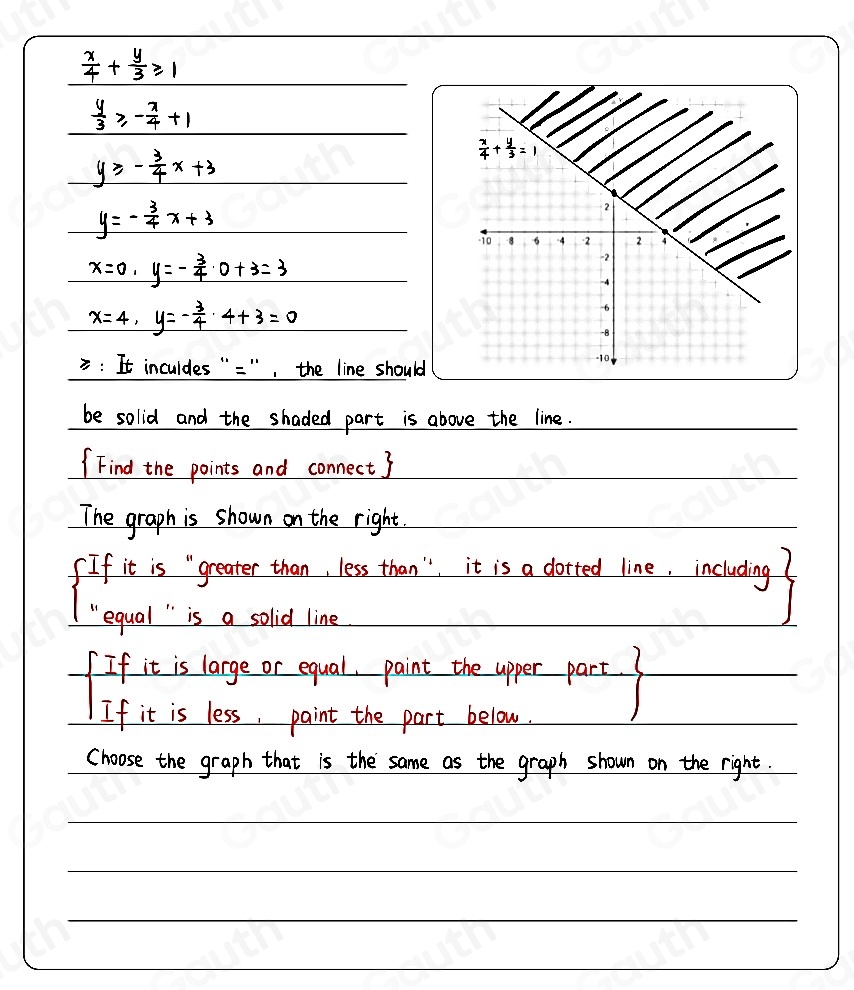 x/4 + y/3 ≥ 1
y/3 ≥ -x/4 + 1
y ≥ -3/4 x + 3
y = -3/4 x + 3
x=0, y = -3/4 · 0 + 3 = 3
x=4, y = -3/4 · 4 + 3 = 0
≥ : It inculdes "=", the line should
be solid and the shaded part is above the line.
{Find the points and connect}
The graph is shown on the right.
{If it is "greater than, less than", it is a dotted line, including
"equal" is a solid line.}
{If it is large or equal, paint the upper part.
If it is less, paint the part below.}
Choose the graph that is the same as the graph shown on the right.
x/4 + y/3 = 1
y
2
-10 -8 -6 -4 -2 2 4
-2
-4
-6
-8
-10
Gauth